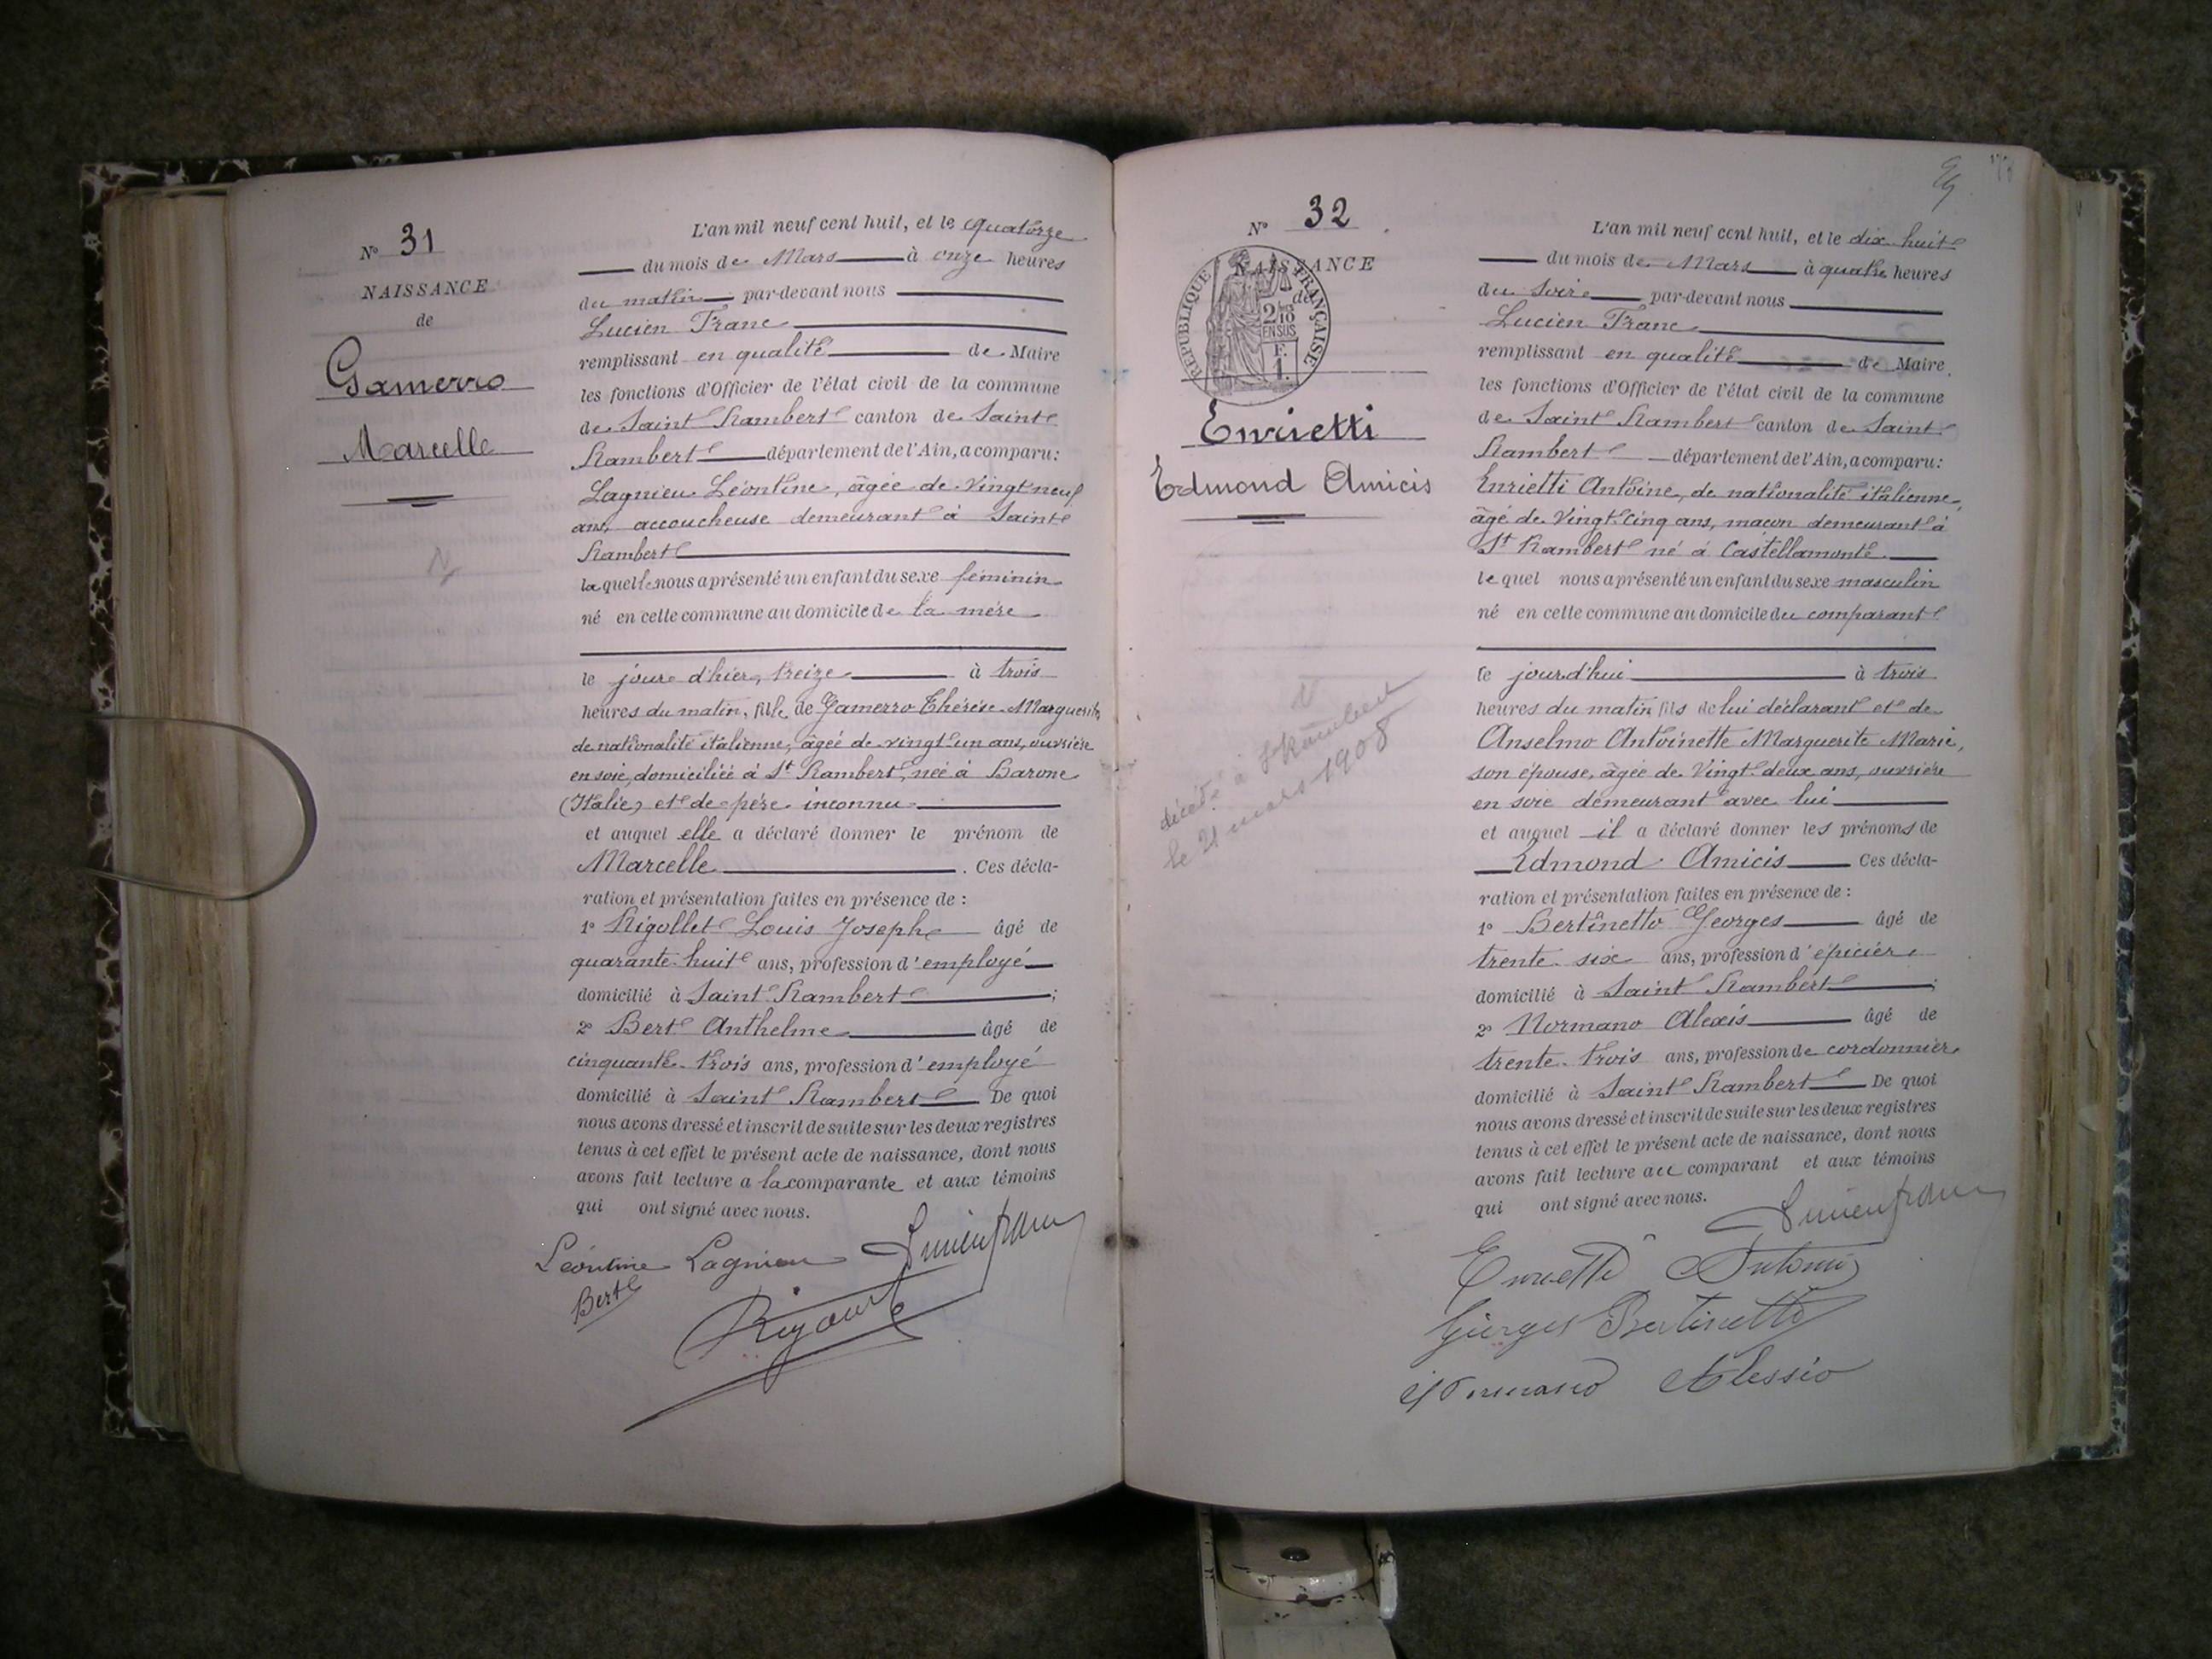 N° 31
NAISSANCE
de
Gamerro
Marcelle
L'an mil neuf cent huit, et le quatorze
du mois de Mars à onze heures
du matin par-devant nous
Lucien Franc
remplissant en qualité de Maire
les fonctions d'Officier de l'état civil de la commune
de Saint Rambert canton de Saint
Rambert département de l'Ain, a comparu:
Lagnieu Léontine, âgée de vingt neuf
ans, accoucheuse demeurant à Saint
Rambert
laquelle nous a présenté un enfant du sexe féminin
né en cette commune au domicile de la mère
le jour d'hier, treize à trois
heures du matin, fille de Gamerro Thérèse Marguerite,
de nationalité italienne, âgée de vingt un ans, ouvrière
en soie, domiciliée à St Rambert, née à Barone
(Italie) et de père inconnu
et auquel elle a déclaré donner le prénom de
Marcelle. Ces décla-
ration et présentation faites en présence de :
1° Rigollet Louis Joseph âgé de
quarante huit ans, profession d'employé
domicilié à Saint Rambert ;
2° Bert Anthelme âgé de
cinquante trois ans, profession d'employé
domicilié à Saint Rambert De quoi
nous avons dressé et inscrit de suite sur les deux registres
tenus à cet effet le présent acte de naissance, dont nous
avons fait lecture a la comparante et aux témoins
qui ont signé avec nous.
Léontine Lagnieu Lucien Franc
Bert
N° 32
NAISSANCE
de
RÉPUBLIQUE FRANÇAISE
2/10
EN SUS
F.
1.
Enrietti
Edmond Amicis
décédé à St Rambert
le 21 mars 1908
L'an mil neuf cent huit, et le dix huit
du mois de Mars à quatre heures
du soir par-devant nous
Lucien Franc
remplissant en qualité de Maire
les fonctions d'Officier de l'état civil de la commune
de Saint Rambert canton de Saint
Rambert département de l'Ain, a comparu:
Enrietti Antoine, de nationalité italienne,
âgé de vingt cinq ans, maçon demeurant à
St Rambert né à Castellamonte
lequel nous a présenté un enfant du sexe masculin
né en cette commune au domicile du comparant
le jourd'hui à trois
heures du matin fils de lui déclarant et de
Anselmo Antoinette Marguerite Marie,
son épouse, âgée de vingt deux ans, ouvrière
en soie demeurant avec lui
et auquel il a déclaré donner les prénoms de
Edmond Amicis Ces décla-
ration et présentation faites en présence de :
1° Bertinetto Georges âgé de
trente six ans, profession d'épicier
domicilié à Saint Rambert ;
2° Normano Alexis âgé de
trente trois ans, profession de cordonnier
domicilié à Saint Rambert De quoi
nous avons dressé et inscrit de suite sur les deux registres
tenus à cet effet le présent acte de naissance, dont nous
avons fait lecture au comparant et aux témoins
qui ont signé avec nous.
Lucien Franc
Enrietti Antonio
Giorges Bertinetto
Normano Alessio